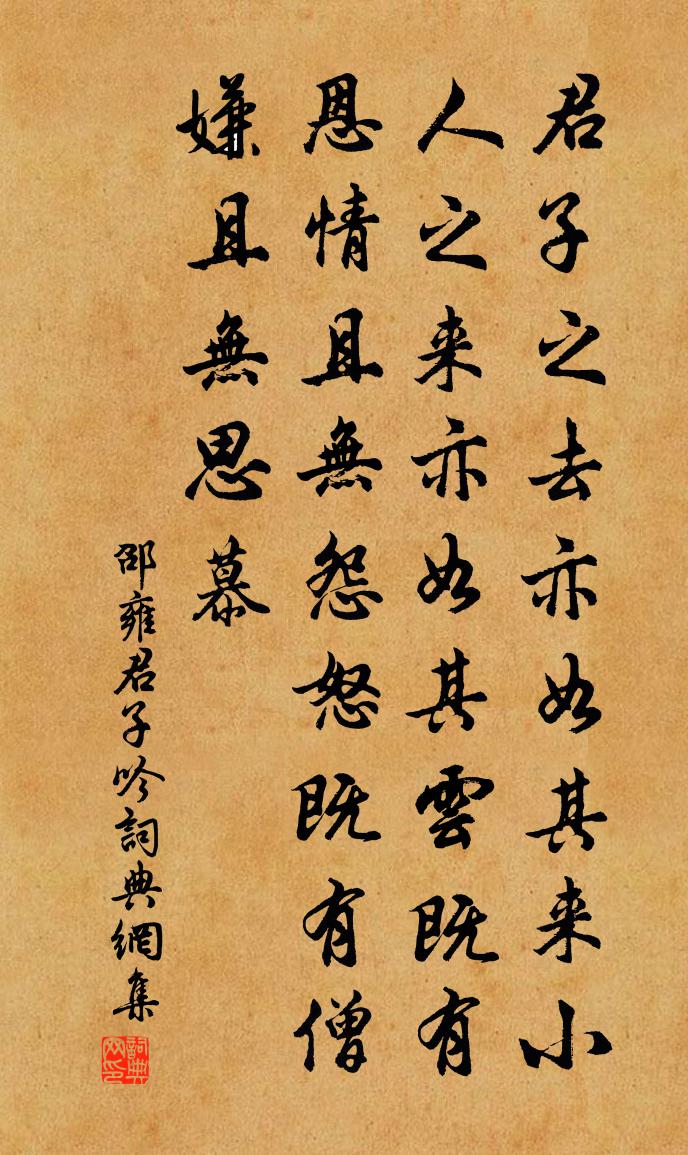 君子之去亦如其来小
人之来亦如其雲既有
恩情且無怨怒既有僧
嫌且無思慕
邵雍君子吟詞典網集
詞典网印